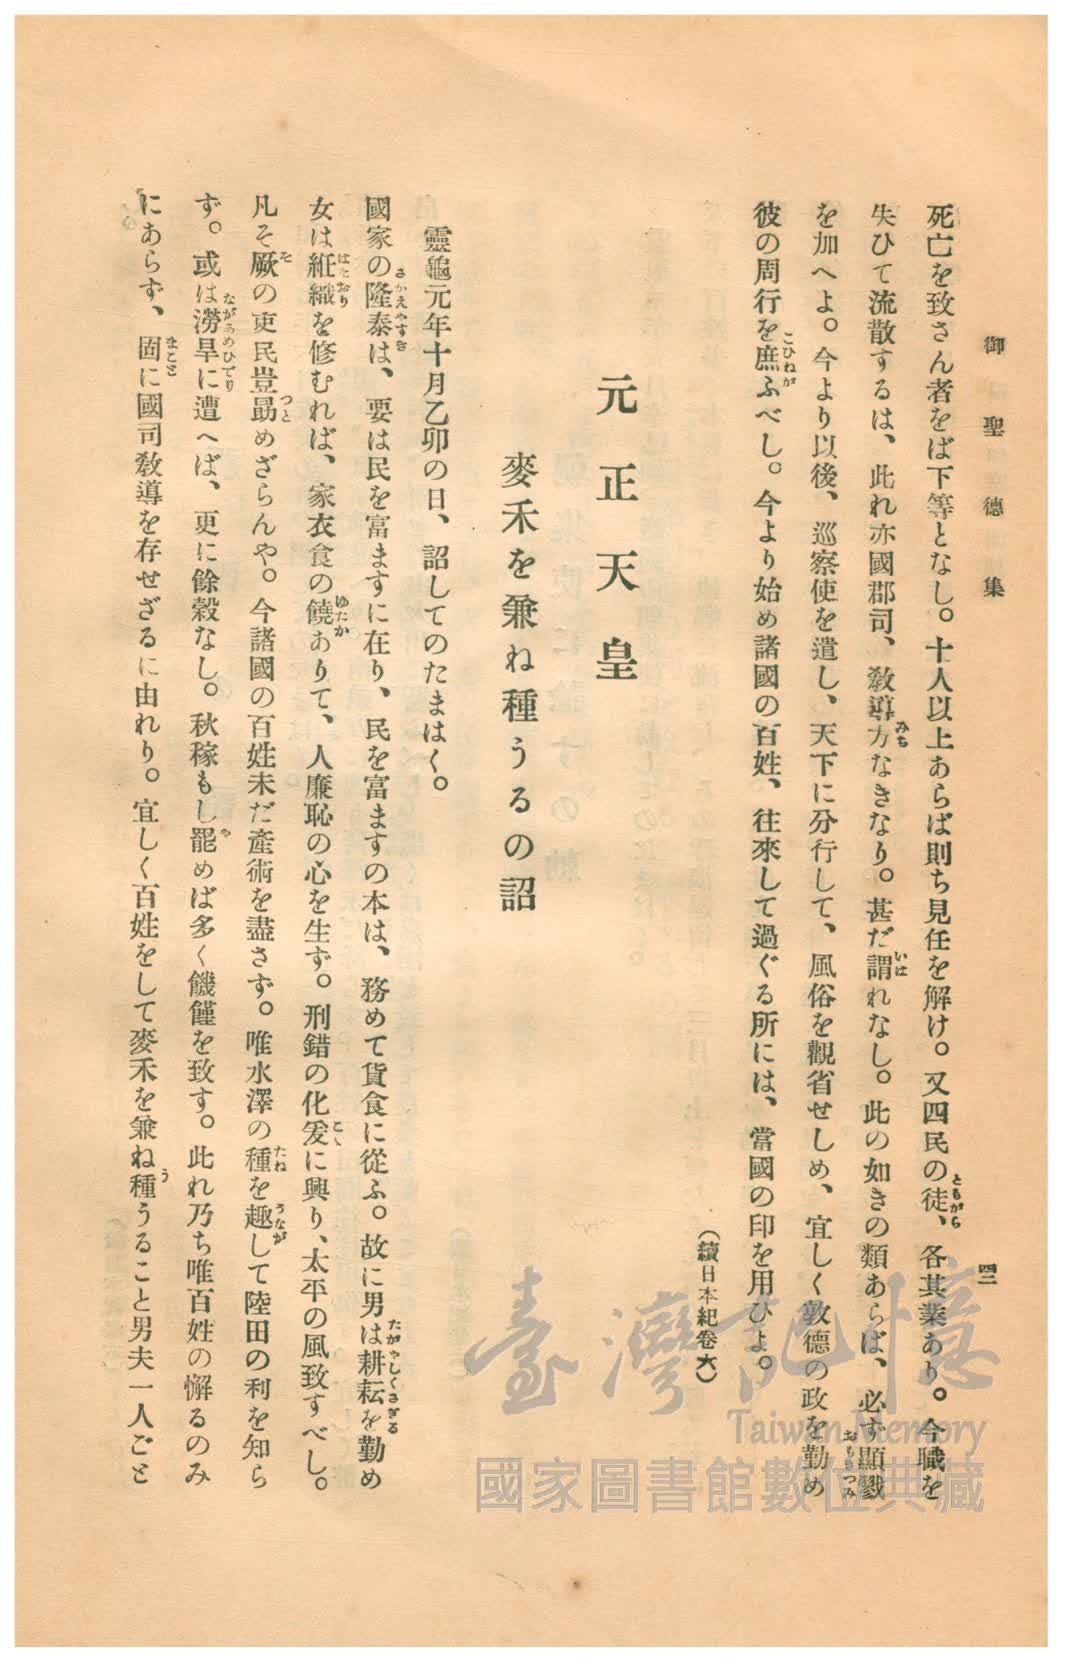 御聖德集
四二
死亡を致さん者をば下等となし。十人以上あらば則ち見任を解け。又四民の徒、各其業あり。今職を
失ひて流散するは、此れ亦國郡司、敎導方なきなり。甚だ謂れなし。此の如きの類あらば、必ず顯戮
を加へよ。今より以後、巡察使を遣し、天下に分行して、風俗を觀省せしめ、宜しく敦德の政を勤め
彼の周行を庶ふべし。今より始め諸國の百姓、往來して過ぐる所には、當國の印を用ひよ。
(續日本紀卷六)
元正天皇
麥禾を兼ね種うるの詔
靈龜元年十月乙卯の日、詔してのたまはく。
國家の隆泰は、要は民を富ますに在り、民を富ますの本は、務めて貨食に從ふ。故に男は耕耘を勤め
女は紝織を修むれば、家衣食の饒ありて、人廉恥の心を生ず。刑錯の化爰に興り、太平の風致すべし。
凡そ厥の吏民豈勗めざらんや。今諸國の百姓未だ產術を盡さず。唯水澤の種を趣して陸田の利を知ら
ず。或は澇旱に遭へば、更に餘穀なし。秋稼もし罷めば多く饑饉を致す。此れ乃ち唯百姓の懈るのみ
にあらず、固に國司敎導を存せざるに由れり。宜しく百姓をして麥禾を兼ね種うること男夫一人ごと
臺灣記憶
Taiwan Memory
國家圖書館數位典藏